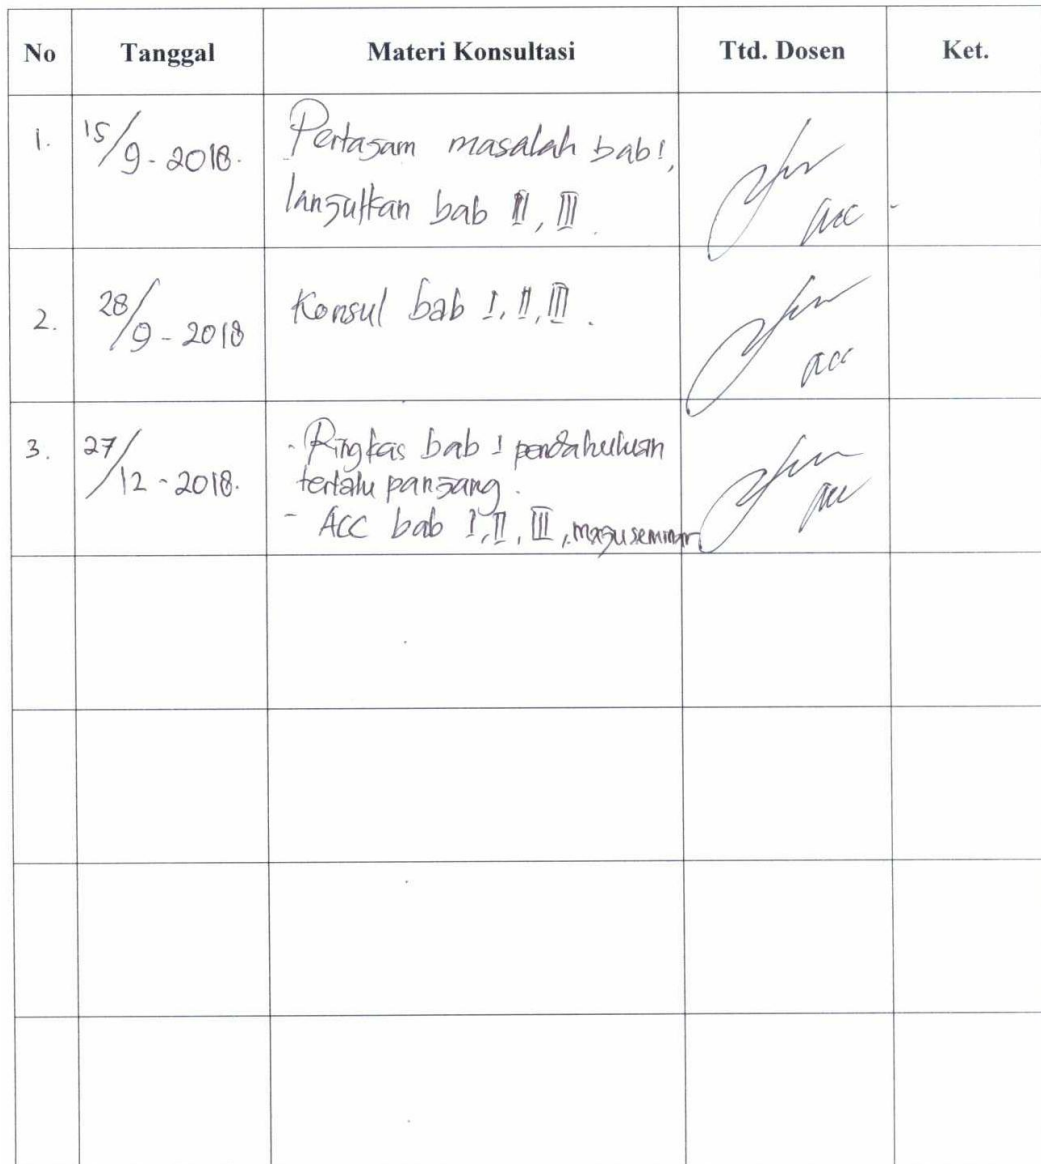 No Tanggal Materi Konsultasi Ttd. Dosen Ket.
1. 15/9-2018. Pertajam masalah bab I,
lanjutkan bab II, III.
acc -
2. 28/9-2018 Konsul bab I, II, III.
acc
3. 27/12-2018. - Ringkas bab I pendahuluan
terlalu panjang.
- ACC bab I, II, III, maju seminar
acc